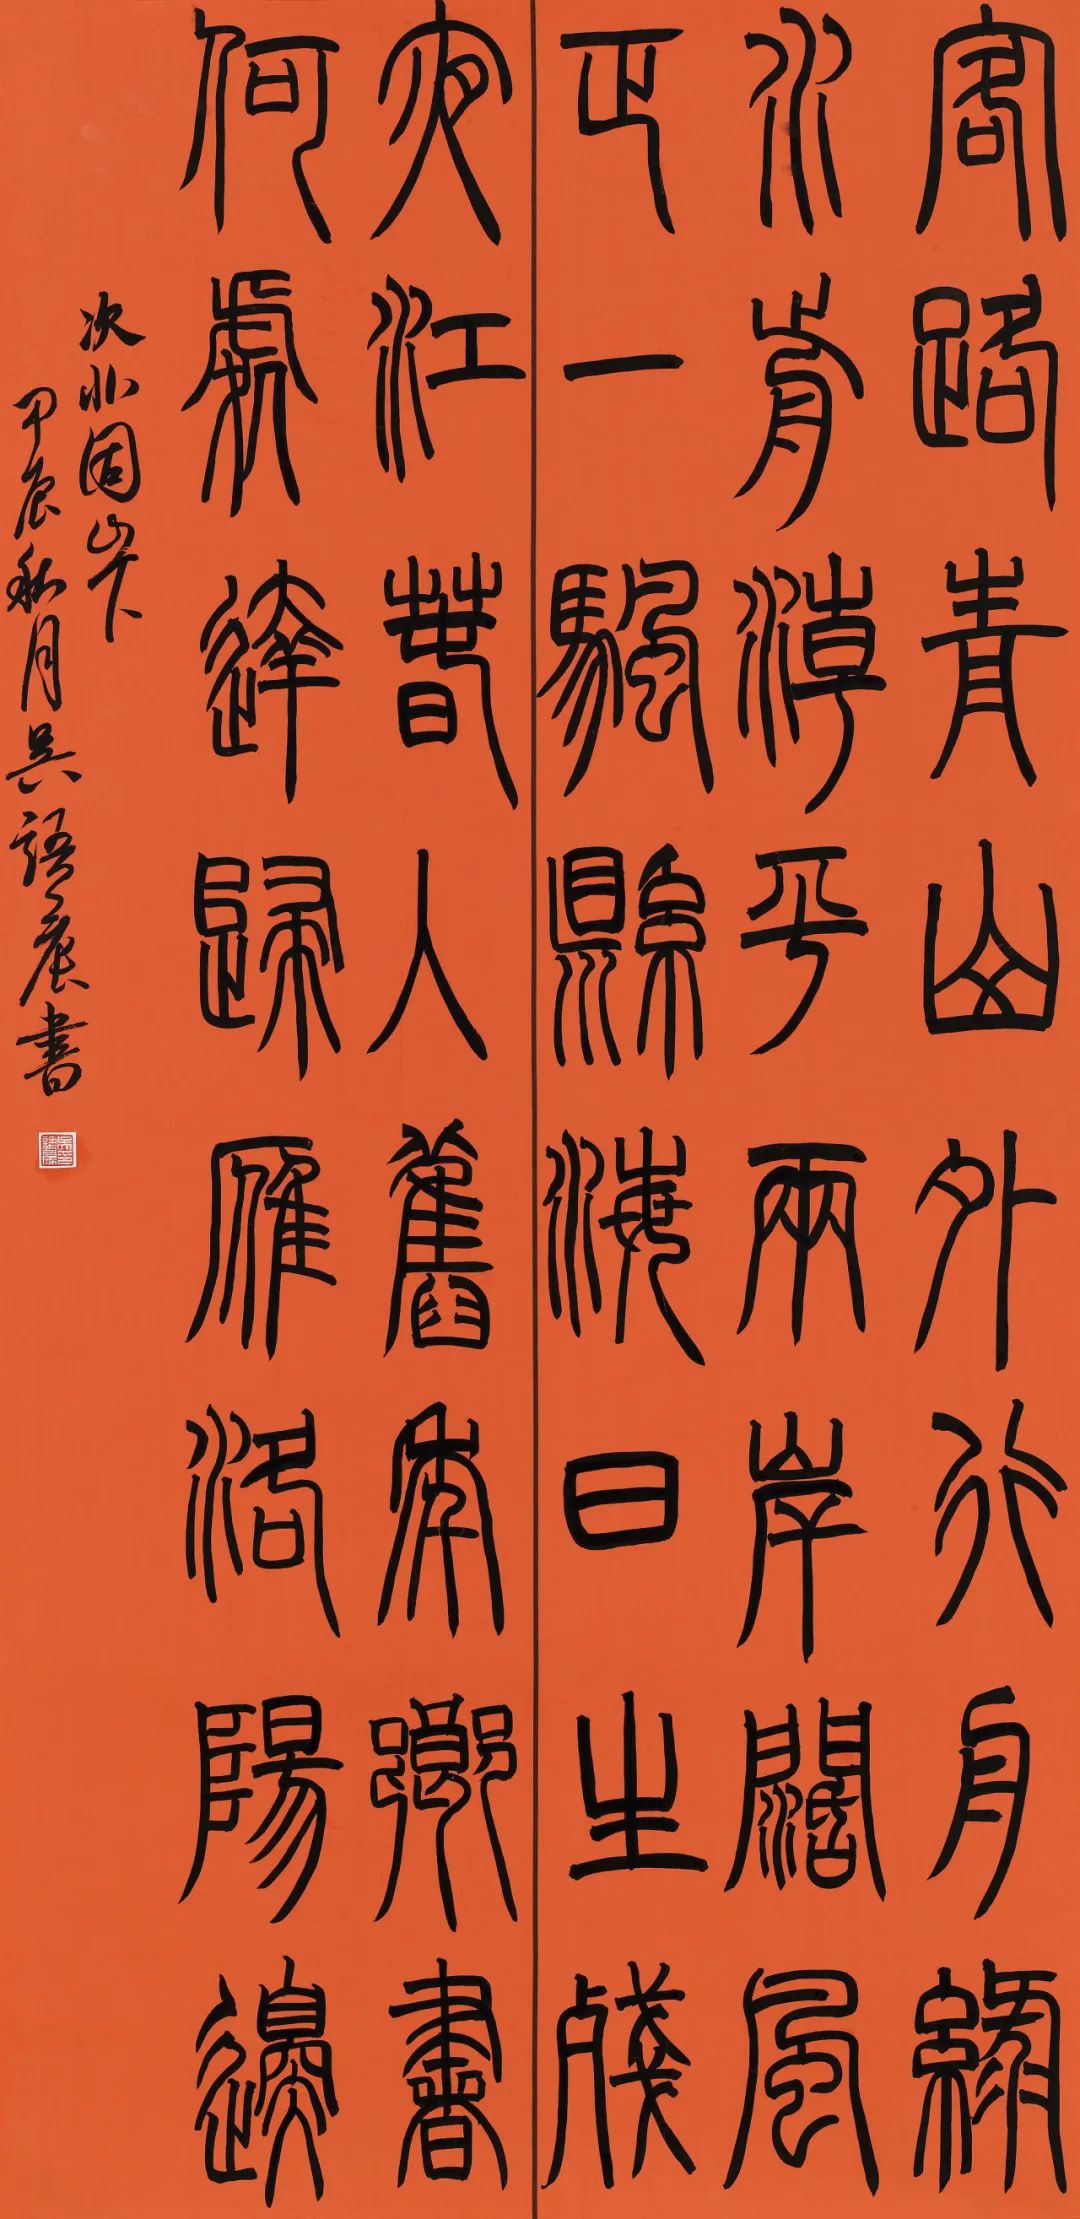 客路青山外行舟綠
水前潮平兩岸闊風
正一颿縣海日生殘
夜江春入舊年鄉書
何處達歸雁洛陽邊
次北固山下
甲辰秋月吳語書